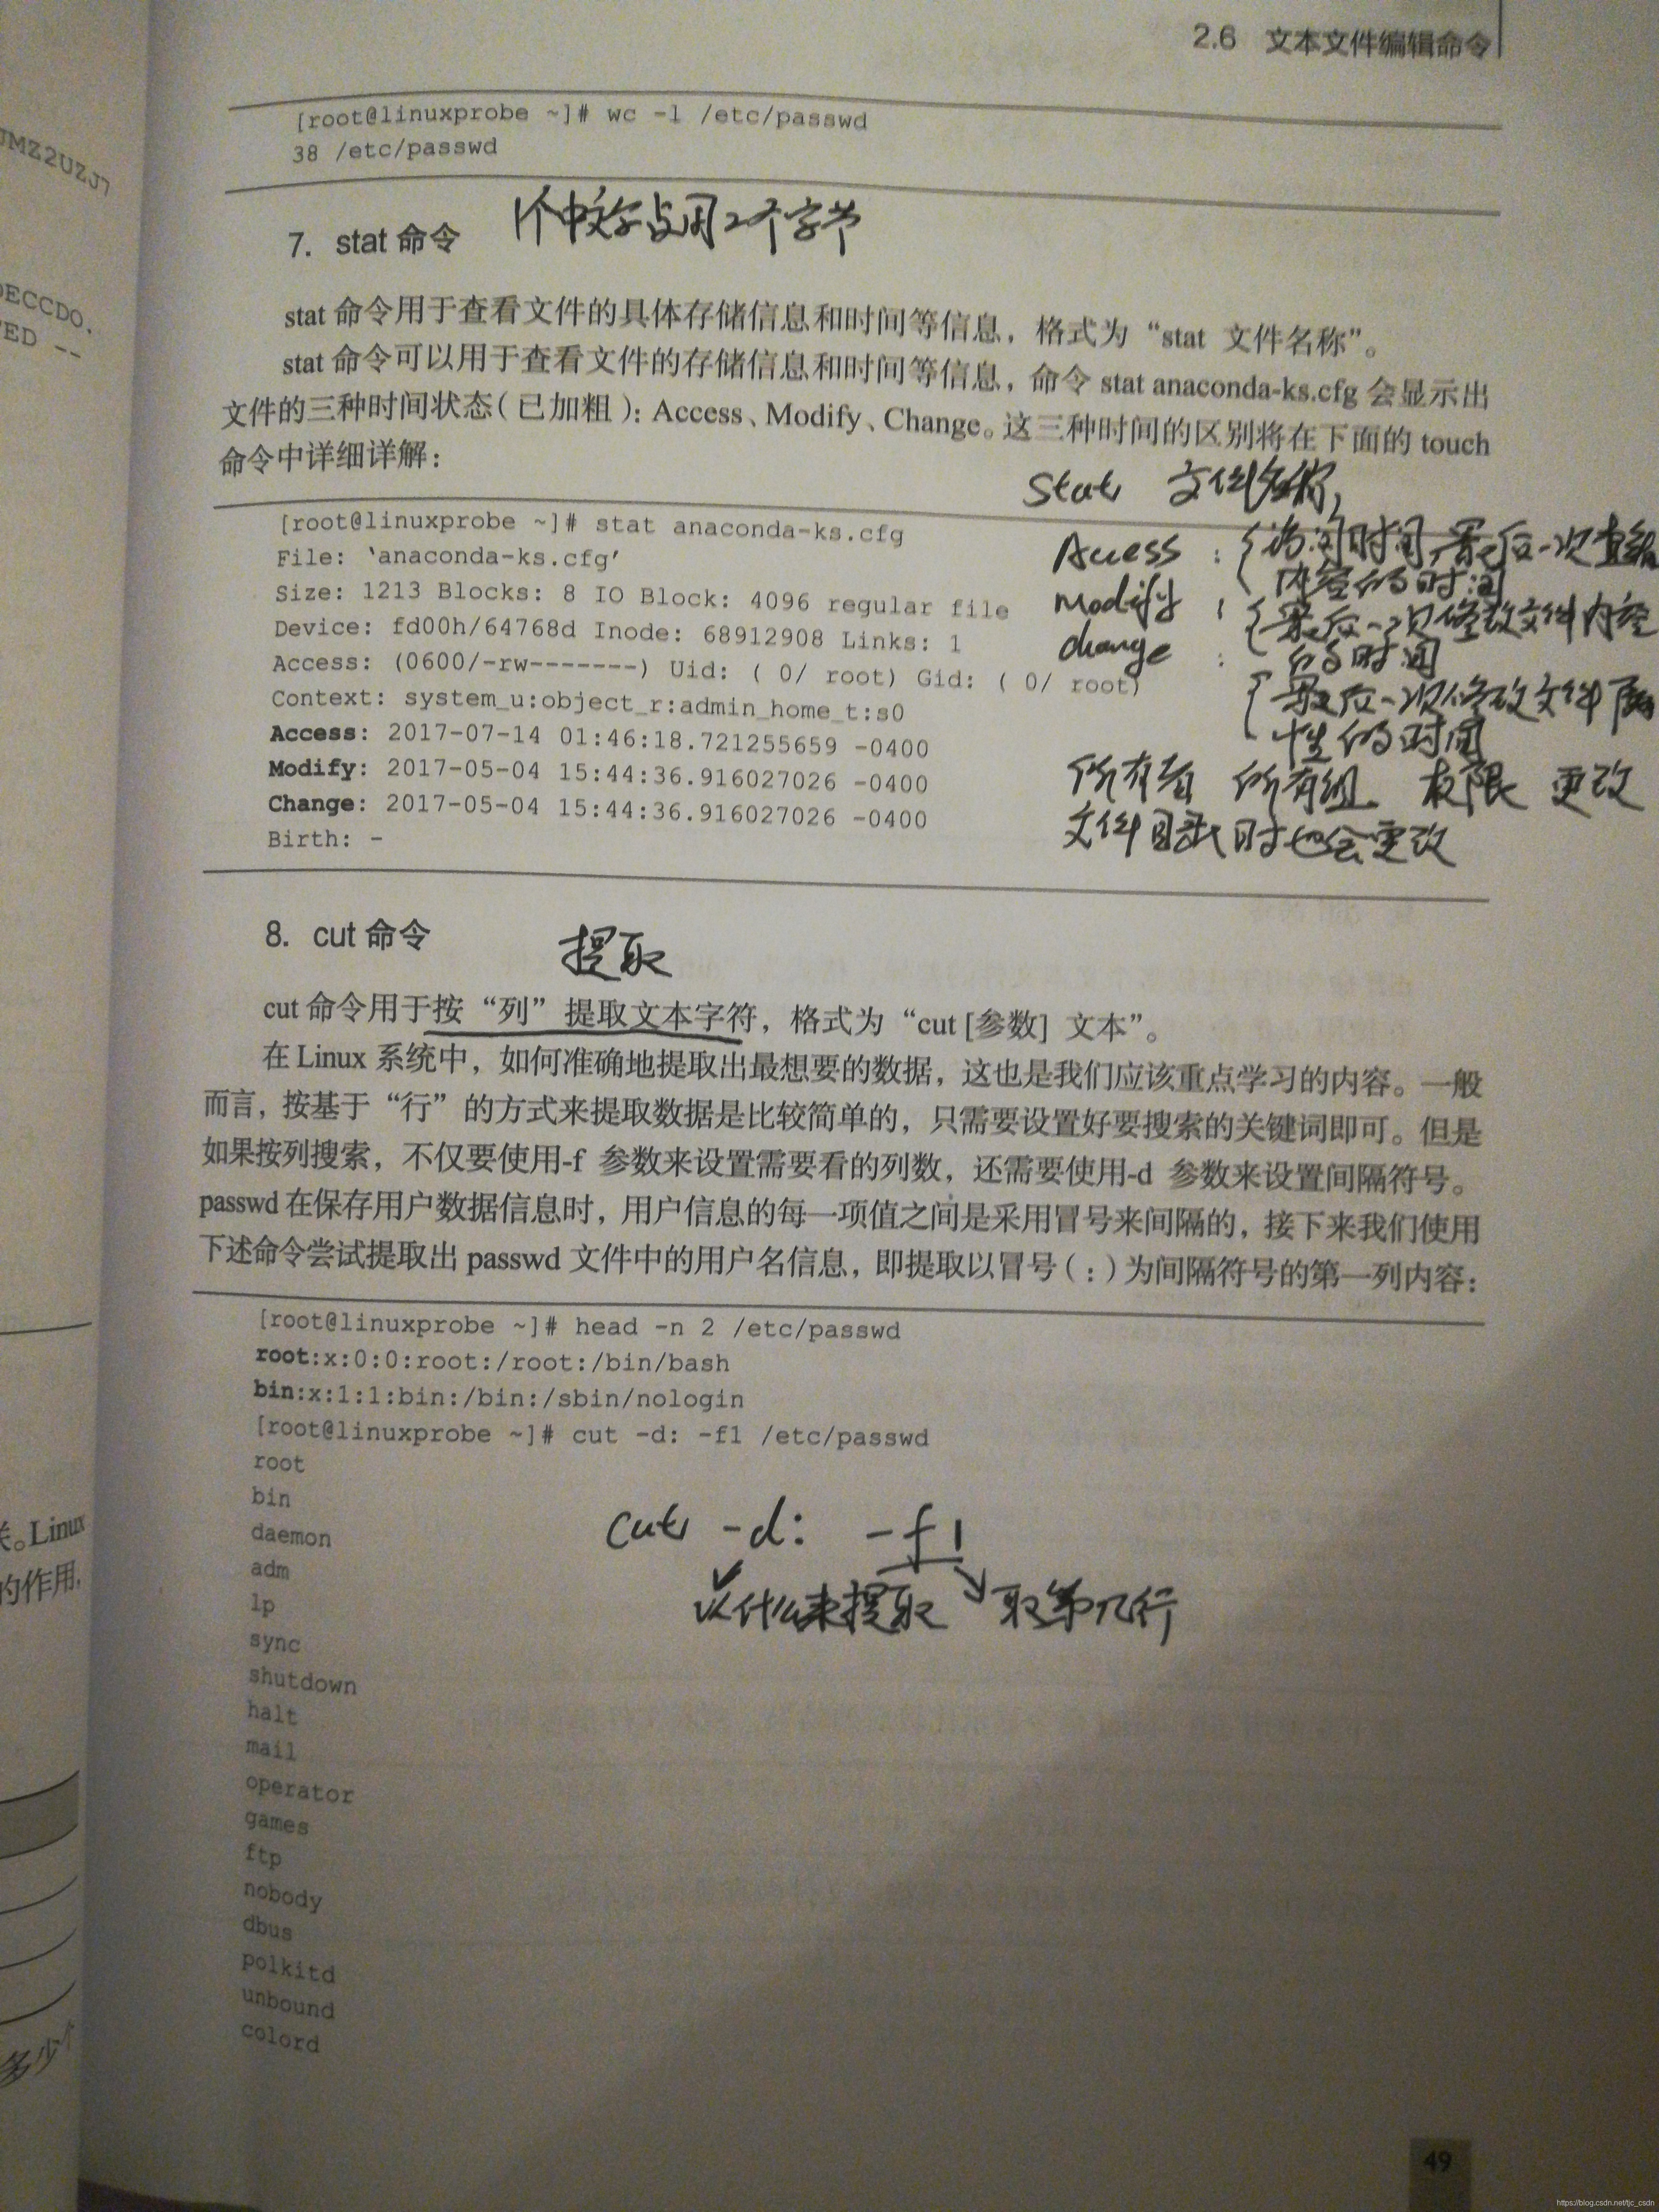 2.6 文本文件编辑命令
[root@linuxprobe ~]# wc -l /etc/passwd
38 /etc/passwd
7. stat 命令
1个中文字占用2个字节
stat 命令用于查看文件的具体存储信息和时间等信息，格式为“stat 文件名称”。
stat 命令可以用于查看文件的存储信息和时间等信息，命令 stat anaconda-ks.cfg 会显示出
文件的三种时间状态（已加粗）：Access、Modify、Change。这三种时间的区别将在下面的 touch
命令中详细详解：
[root@linuxprobe ~]# stat anaconda-ks.cfg
File: ‘anaconda-ks.cfg’
Size: 1213 Blocks: 8 IO Block: 4096 regular file
Device: fd00h/64768d Inode: 68912908 Links: 1
Access: (0600/-rw-------) Uid: ( 0/ root) Gid: ( 0/ root)
Context: system_u:object_r:admin_home_t:s0
Access: 2017-07-14 01:46:18.721255659 -0400
Modify: 2017-05-04 15:44:36.916027026 -0400
Change: 2017-05-04 15:44:36.916027026 -0400
Birth: -
Stat 文件名称,
Access : 访问时间,最后一次查
内容的时间
Modify : 最后一次修改文件内容
的时间
change : 最后一次修改文件属
性的时间
所有者 所有组 权限 更改
文件目录时也会更改
8. cut 命令
提取
cut 命令用于按“列”提取文本字符，格式为“cut [参数] 文本”。
在 Linux 系统中，如何准确地提取出最想要的数据，这也是我们应该重点学习的内容。一般
而言，按基于“行”的方式来提取数据是比较简单的，只需要设置好要搜索的关键词即可。但是
如果按列搜索，不仅要使用-f 参数来设置需要看的列数，还需要使用-d 参数来设置间隔符号。
passwd 在保存用户数据信息时，用户信息的每一项值之间是采用冒号来间隔的，接下来我们使用
下述命令尝试提取出 passwd 文件中的用户名信息，即提取以冒号（:）为间隔符号的第一列内容：
[root@linuxprobe ~]# head -n 2 /etc/passwd
root:x:0:0:root:/root:/bin/bash
bin:x:1:1:bin:/bin:/sbin/nologin
[root@linuxprobe ~]# cut -d: -f1 /etc/passwd
root
bin
daemon
adm
lp
sync
shutdown
halt
mail
operator
games
ftp
nobody
dbus
polkitd
unbound
colord
cut -d: -f1
以什么来提取 取第几行
49
JMZ2UZJ7
DECCDO.
ED --
。Linux
的作用,
多少
https://blog.csdn.net/tjc_csdn